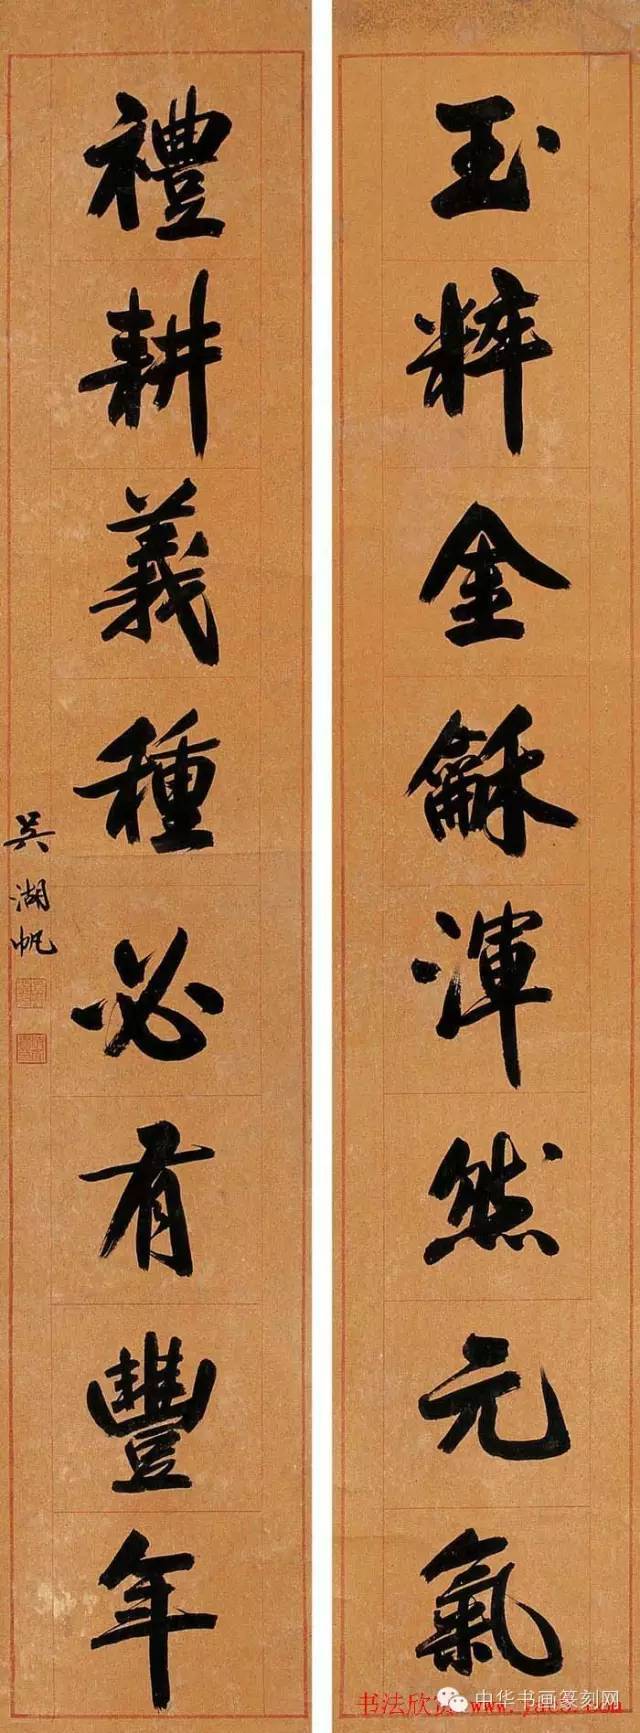 玉粹金龢渾然元氣
禮耕義種必有豐年
吳湖帆
书法欣赏
中华书画篆刻网